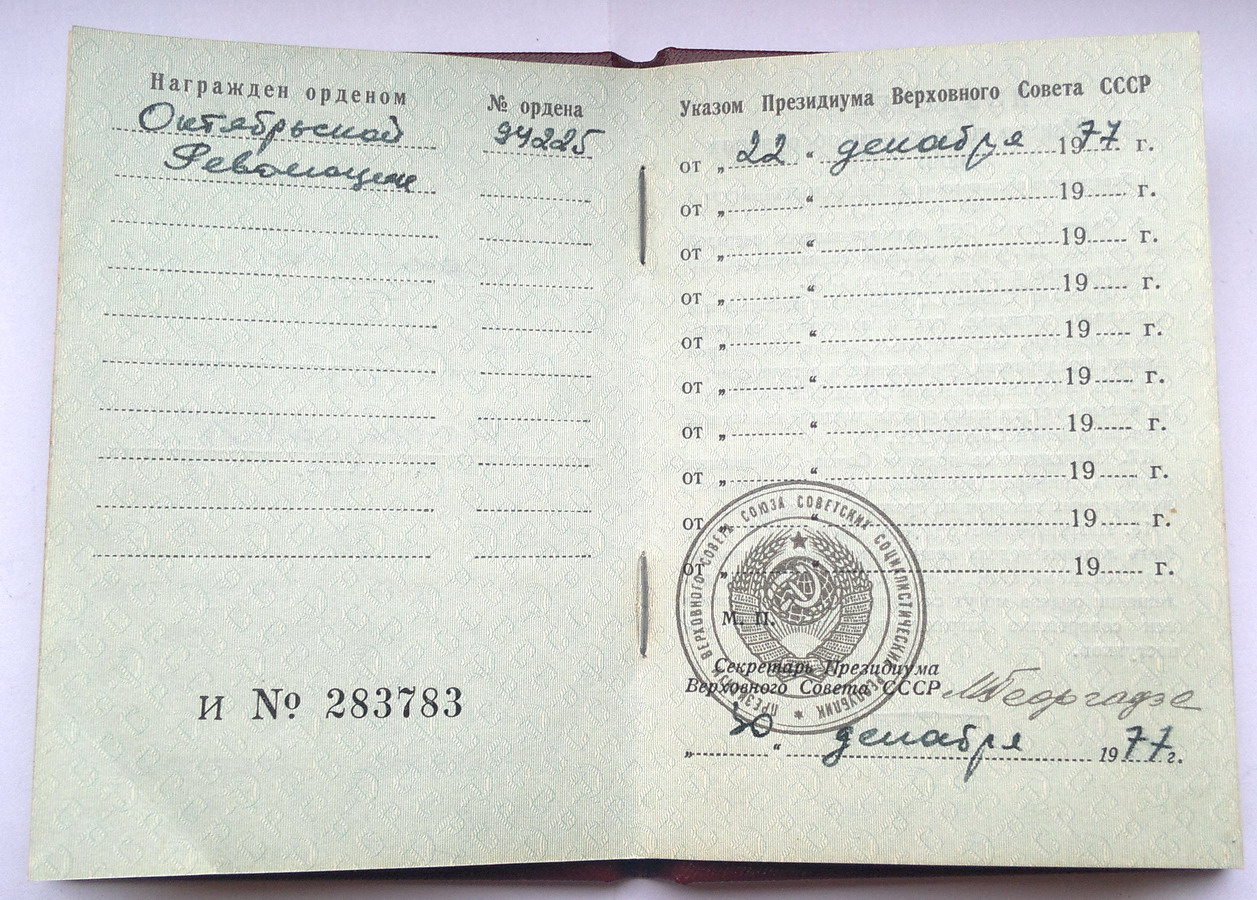 Награжден орденом
№ ордена
Октябрьской
94225
Революции
И № 283783
Указом Президиума Верховного Совета СССР
от „ 22 “ декабря 1977 г.
от „ “ 19 г.
от „ “ 19 г.
от „ “ 19 г.
от „ “ 19 г.
от „ “ 19 г.
от „ “ 19 г.
от „ “ 19 г.
от „ “ 19 г.
от „ “ 19 г.
ПРЕЗИДИУМ ВЕРХОВНОГО СОВЕТА СОЮЗА СОВЕТСКИХ СОЦИАЛИСТИЧЕСКИХ РЕСПУБЛИК
М. П.
Секретарь Президиума
Верховного Совета СССР МГеоргадзе
„ 30 “ декабря 1977 г.